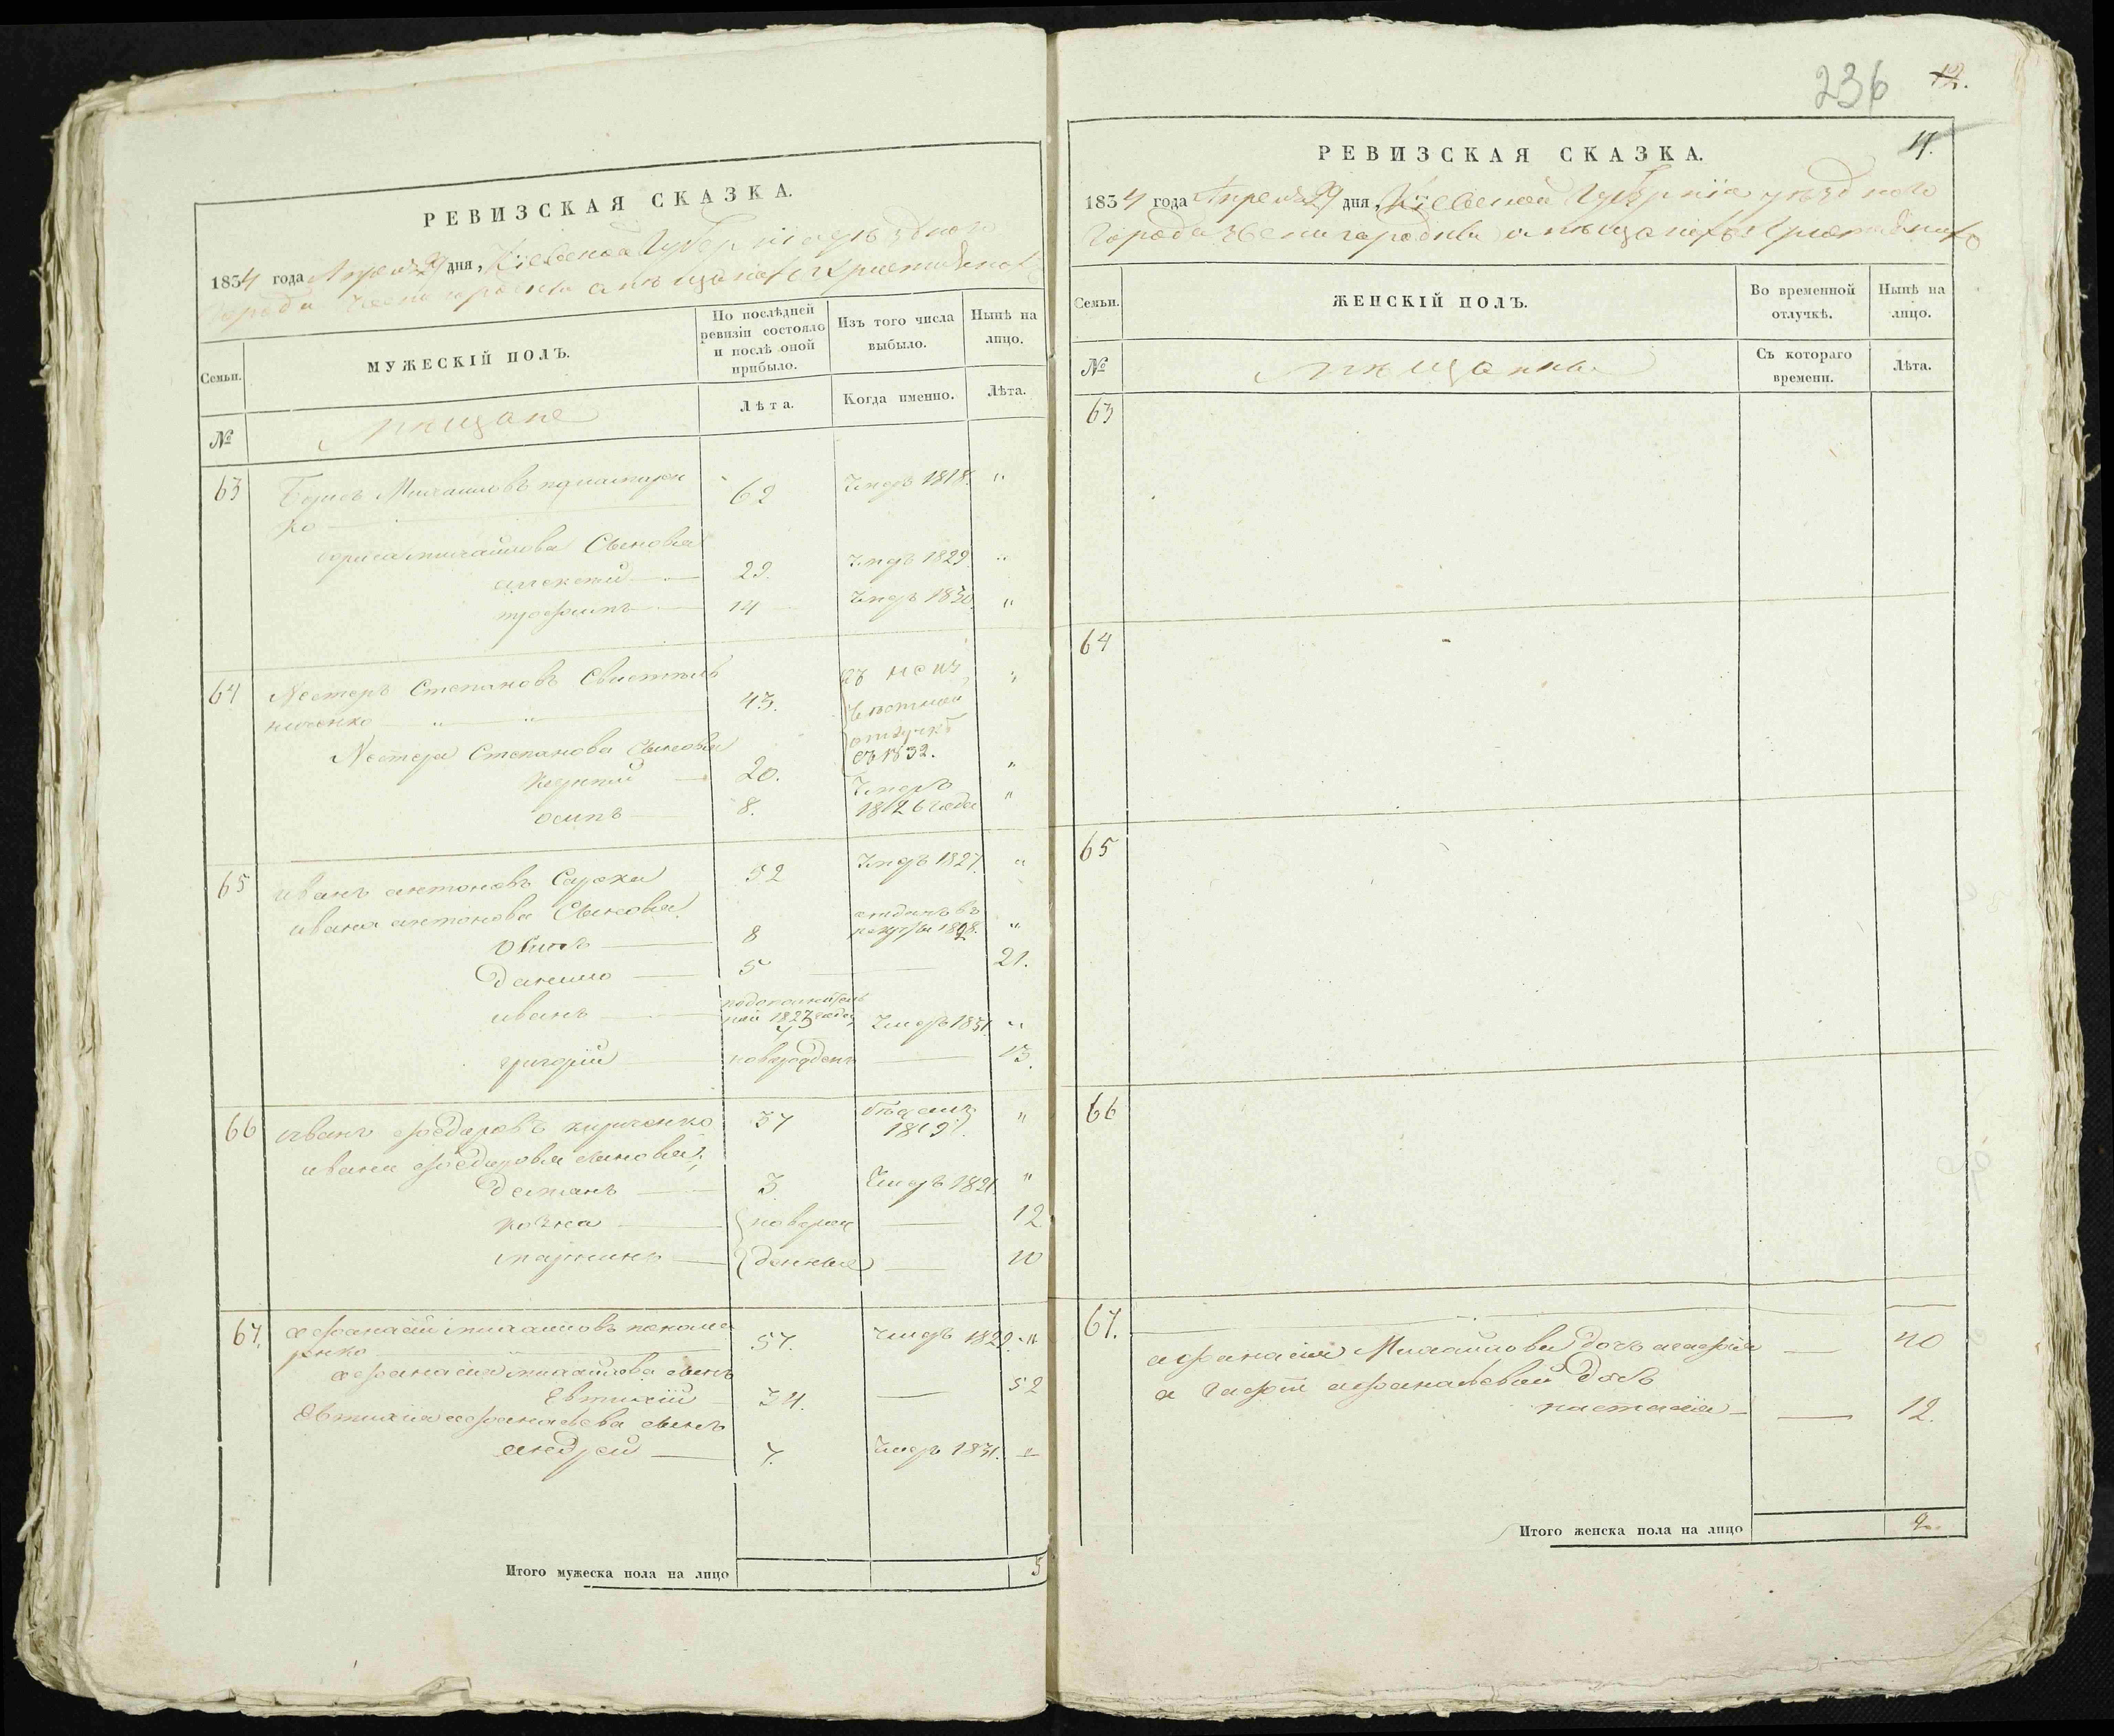 РЕВИЗСКАЯ СКАЗКА.
1834 года Апреля 29 дня, Кіевской Губерніи уѣзднаго
города Звенигородки о мѣщанахъ Христіянахъ
Семьи.
МУЖЕСКІЙ ПОЛЪ.
По послѣдней ревизіи состояло и послѣ оной прибыло.
Изъ того числа выбыло.
Нынѣ на лицо.
№
мѣщане
Лѣта.
Когда именно.
Лѣта.
63 Борисъ Михаиловъ 62 Умеръ 1818. "
ко
Бориса михайлова Сыновья
алексей 29. Умеръ 1829 "
трофимъ 14 Умеръ 1830 "
64 Нестеръ Степановъ 43. "
ниченко " "
отлучкѣ
съ 1832.
Нестера Степанова Сыновья
20. "
осипъ 8. Умеръ 1826 года "
65 иванъ антоновъ 52 Умеръ 1827. "
ивана антонова Сыновья
8 отданъ въ рекруты 1828. "
Данило 5 — 21.
иванъ 1823 года Умеръ 1831. "
григорій новорожденъ — 13.
66 иванъ Федоровъ кириченко 37 бѣжалъ 1819. "
ивана Федорова сыновья,
Демянъ 3 Умеръ 1821. "
козма новорож — 12
мартинъ денные — 10
67. афанасій михаиловъ
57. Умеръ 1829. "
афанасія михайлова сынъ
Евтихій 34. — 52
Евтихія афанасьева сынъ
андрей 7. Умеръ 1831. "
Итого мужеска пола на лицо 5
236 12.
17.
РЕВИЗСКАЯ СКАЗКА.
1834 года Апреля 29 дня, Кіевской Губерніи уѣзднаго
Города Звенигородки о мѣщанахъ Христіянахъ
Семьи.
ЖЕНСКІЙ ПОЛЪ.
Во временной отлучкѣ.
Нынѣ на лицо.
№
мѣщанки
Съ котораго времени.
Лѣта.
63
64
65
66
67.
афанасія Михаилова дочь агафія — 40
агафіи афанасьевой дочь
настасія — — 12.
Итого женска пола на лицо 2.